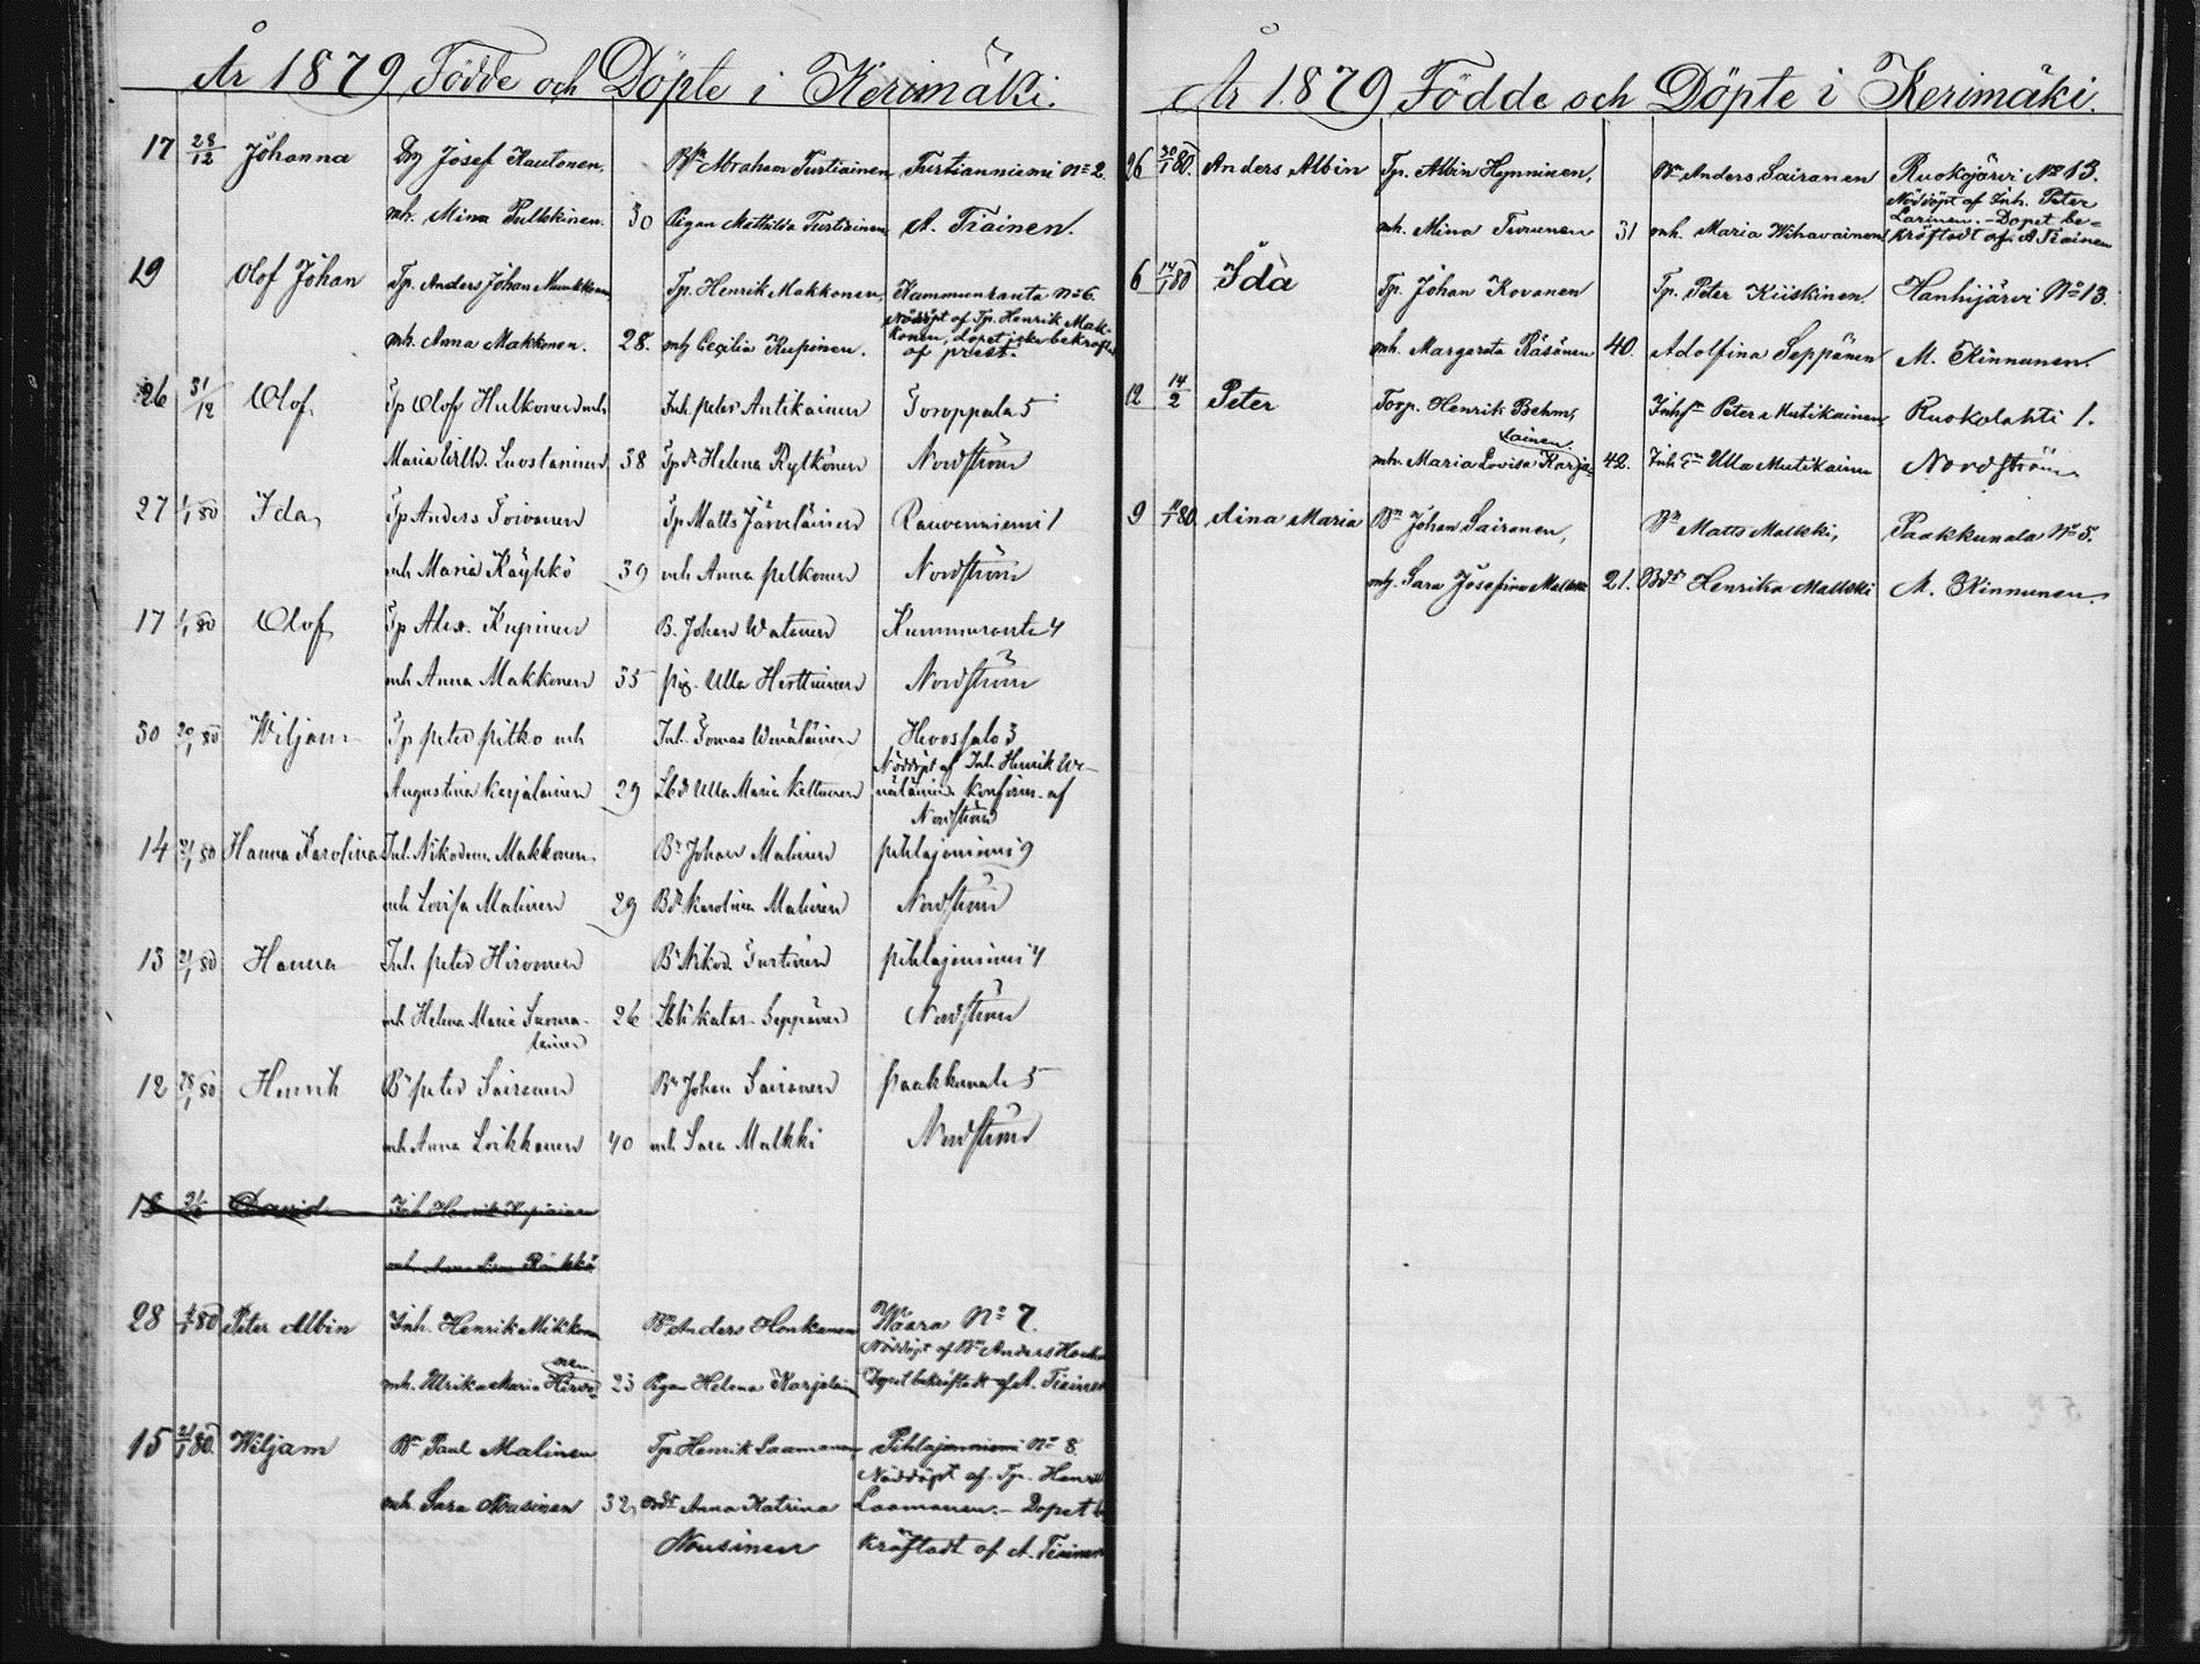 År 1879 Födde och Döpte i Kerimäki.
17 28/12 Johanna Josef Kautonen. Bn Abraham Turtiainen Turtianniemi No 2.
mh. Mina Pulkkinen. 30 Pigan Mathilda Turtiainen A. Tiainen.
19 Olof Johan Tp. Anders Johan Tp. Henrik Makkonen, Kammunranta No 6.
Nöddöpt af Tp. Henrik Mak-
mh. Anna Makkonen. 28. mh Cecilia Kupinen. konen, dopet icke bekräft
af prest.
26 31/12 Olof Tp Olof Hulkonen mh Inh. Peter Antikainen Toroppala 5
Maria Wilh. Luostarinen 38 Tp dr Helena Rytkönen Nordström
27 1/1 80 Ida Tp Anders Toivanen Tp Matts Järveläinen Rauvanniemi 1
mh Maria Käyhkö 39 mh Anna Pelkonen Nordström
17 1/1 80 Olof Tp Alex. Kupinen B. Johan Watanen Kummuranta 4
mh Anna Makkonen 35 pig. Ulla Herttuinen Nordström
30 20/1 80 Wiljam Tp Peter Pitko mh Inh. Tomas Wenäläinen Hevossalo 3
Nöddöpt af Inh Henrik We-
Augustina Karjalainen 29 Lbd Ulla Maria Keltunen näläinen konfirm. af
Nordström
14 21/1 80 Hanna Karolina Inh. Nikodem. Makkonen Bn Johan Malinen Pihlajaniemi 9
mh Lovisa Malinen 29 Bdr Karolina Malinen Nordström
13 21/1 80 Hanna Inh. Peter Hirvonen Bn Nikod. Turtinen Pihlajaniemi 4
mh Helena Maria Suoma- 26 Katar. Seppänen Nordström
lainen
12 28/1 80 Henrik Bn Peter Sairanen Bn Johan Sairanen Paakkunala 5
mh Anna Loikkanen 40 mh Sara Malkki Nordström
18 David Inh Henrik Kupiainen
mh Anna Röukkö
28 4/1 80 Peter Albin Inh. Henrik Mikkonen Bn Anders Honkanen Waara No 7.
Nöddöpt af Bn Anders Honka
nen
mh. Ulrika Maria Hirvo- 23 Pigan Helena Karjalain Dopet bekräftadt af A. Tiainen
15 21/1 80. Wiljam Bn Paul Malinen Tp. Henrik Laamanen, Pihlajaniemi No 8.
Nöddöpt af Tp. Henrik
mh. Sara Nousinen 32, Anna Katrina Laamanen. – Dopet be
Nousinen kräftadt af A. Tiainen
År 1879 Födde och Döpte i Kerimäki.
26 30/1 80. Anders Albin Tp. Albin Hynninen, Bn Anders Sairanen Ruokojärvi No 13.
Nöddöpt af Inh. Peter
Larinen. – Dopet be-
mh. Mina Turunen 31 mh. Maria Wihavainen kräftadt af A Tiainen
6 14/1 80 Ida Tp. Johan Kovanen Tp. Peter Kiiskinen. Hanhijärvi No 13.
mh. Margareta Räsänen 40. Adolfina Seppänen M. Kinnunen.
12 14/2 Peter Torp. Henrik Behm, Inhsn Peter Mutikainen, Ruokolahti 1.
lainen
mh. Maria Lovisa Karja- 42. Inh Ulla Mutikainen Nordström
9 80. Aina Maria Bn Johan Sairanen, Bn Matts Malkki, Paakkunala No 5.
mh. Sara Josefina Malkki 21. Bdr Henrika Malkki M. Kinnunen.